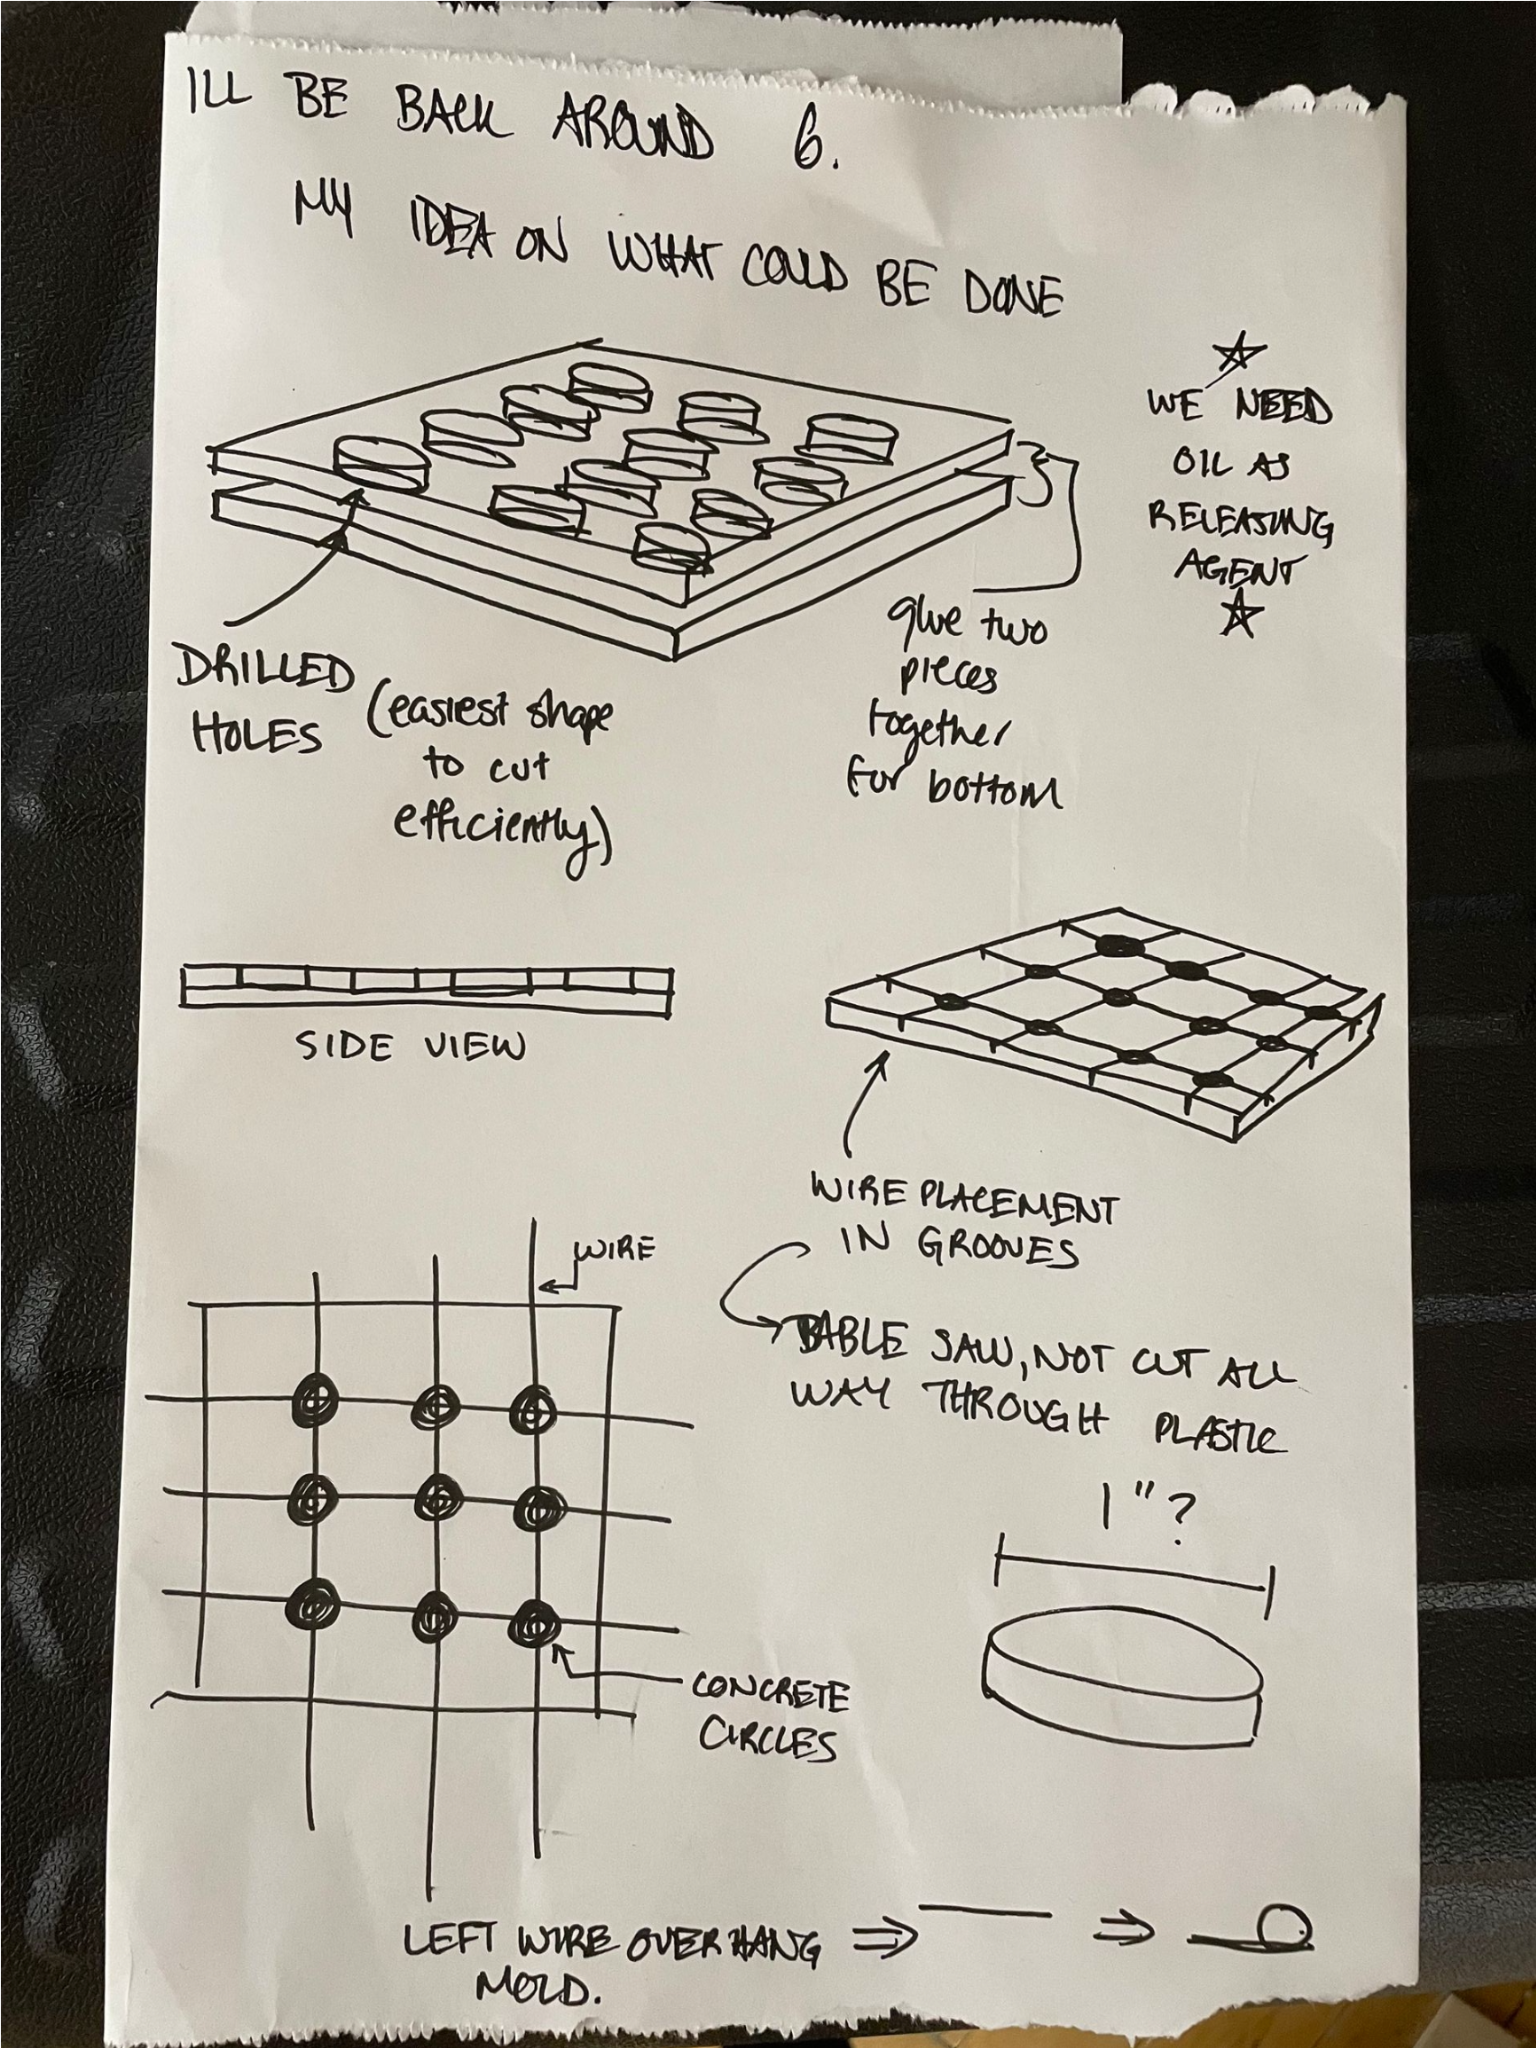 ILL BE BACK AROUND 6.
MY IDEA ON WHAT COULD BE DONE
WE NEED
OIL AS
RELEASING
AGENT
DRILLED
HOLES
(easiest shape
to cut
efficiently)
glue two
pieces
together
for bottom
SIDE VIEW
WIRE PLACEMENT
IN GROOVES
BABLE SAW, NOT CUT ALL
WAY THROUGH PLASTIC
WIRE
1"?
CONCRETE
CIRCLES
LEFT WIRE OVERHANG
MOLD.